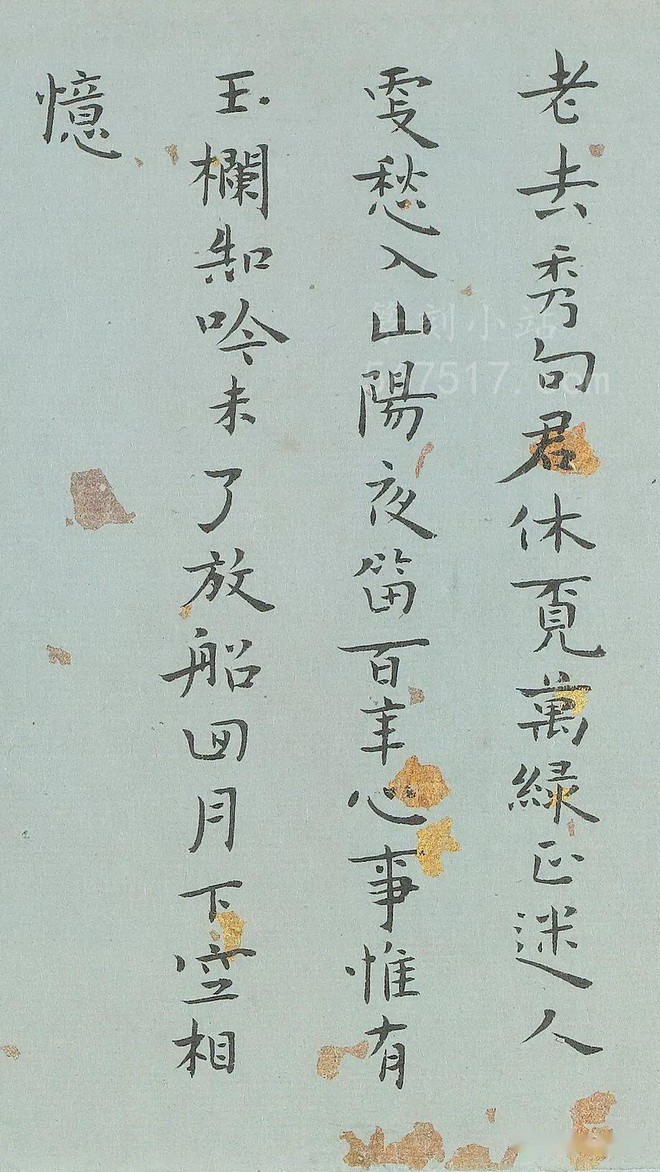 老去秀句君休覓萬緑正迷人
更愁入山陽夜笛百年心事惟有
玉欄知吟未了放船回月下空相
憶
篆刻小站
507517.com